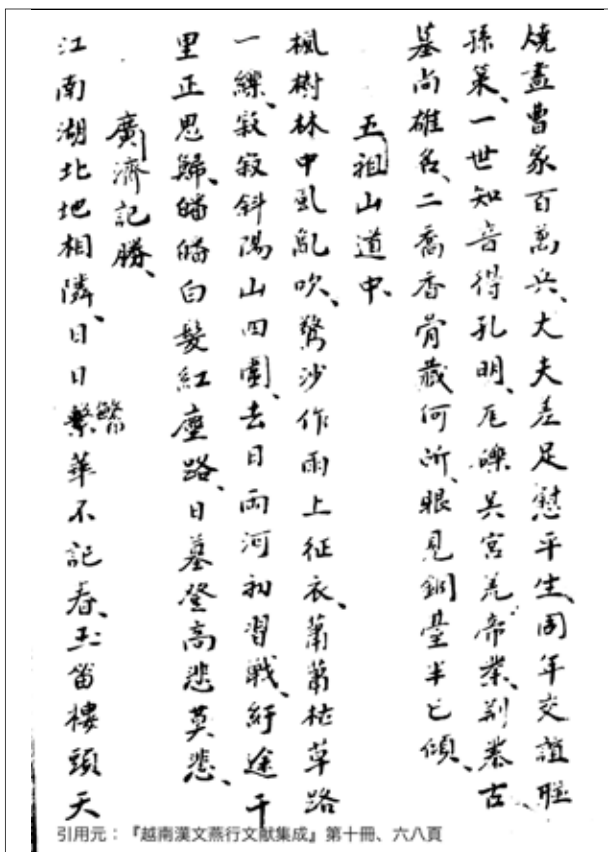 燒盡曹家百萬兵、大夫差足慰平生、同年交誼聯
孫策、一世知音得孔明、瓦礫吳宮荒帝業、荆蓁古
墓尚雄名、二喬香骨藏何所、眼見銅臺半已傾、
五祖山道中、
楓樹林中風亂吹、驚沙作雨上征衣、蕭蕭枯草路
一縷、寂寂斜陽山四圍、去日兩河初習戰、紆途千
里正思歸、皤皤白髮紅塵路、日暮登高悲莫悲、
廣濟記勝、
江南湖北地相隣、日日繁華不記春、玉笛樓頭天
繁
引用元：『越南漢文燕行文献集成』第十冊、六八頁